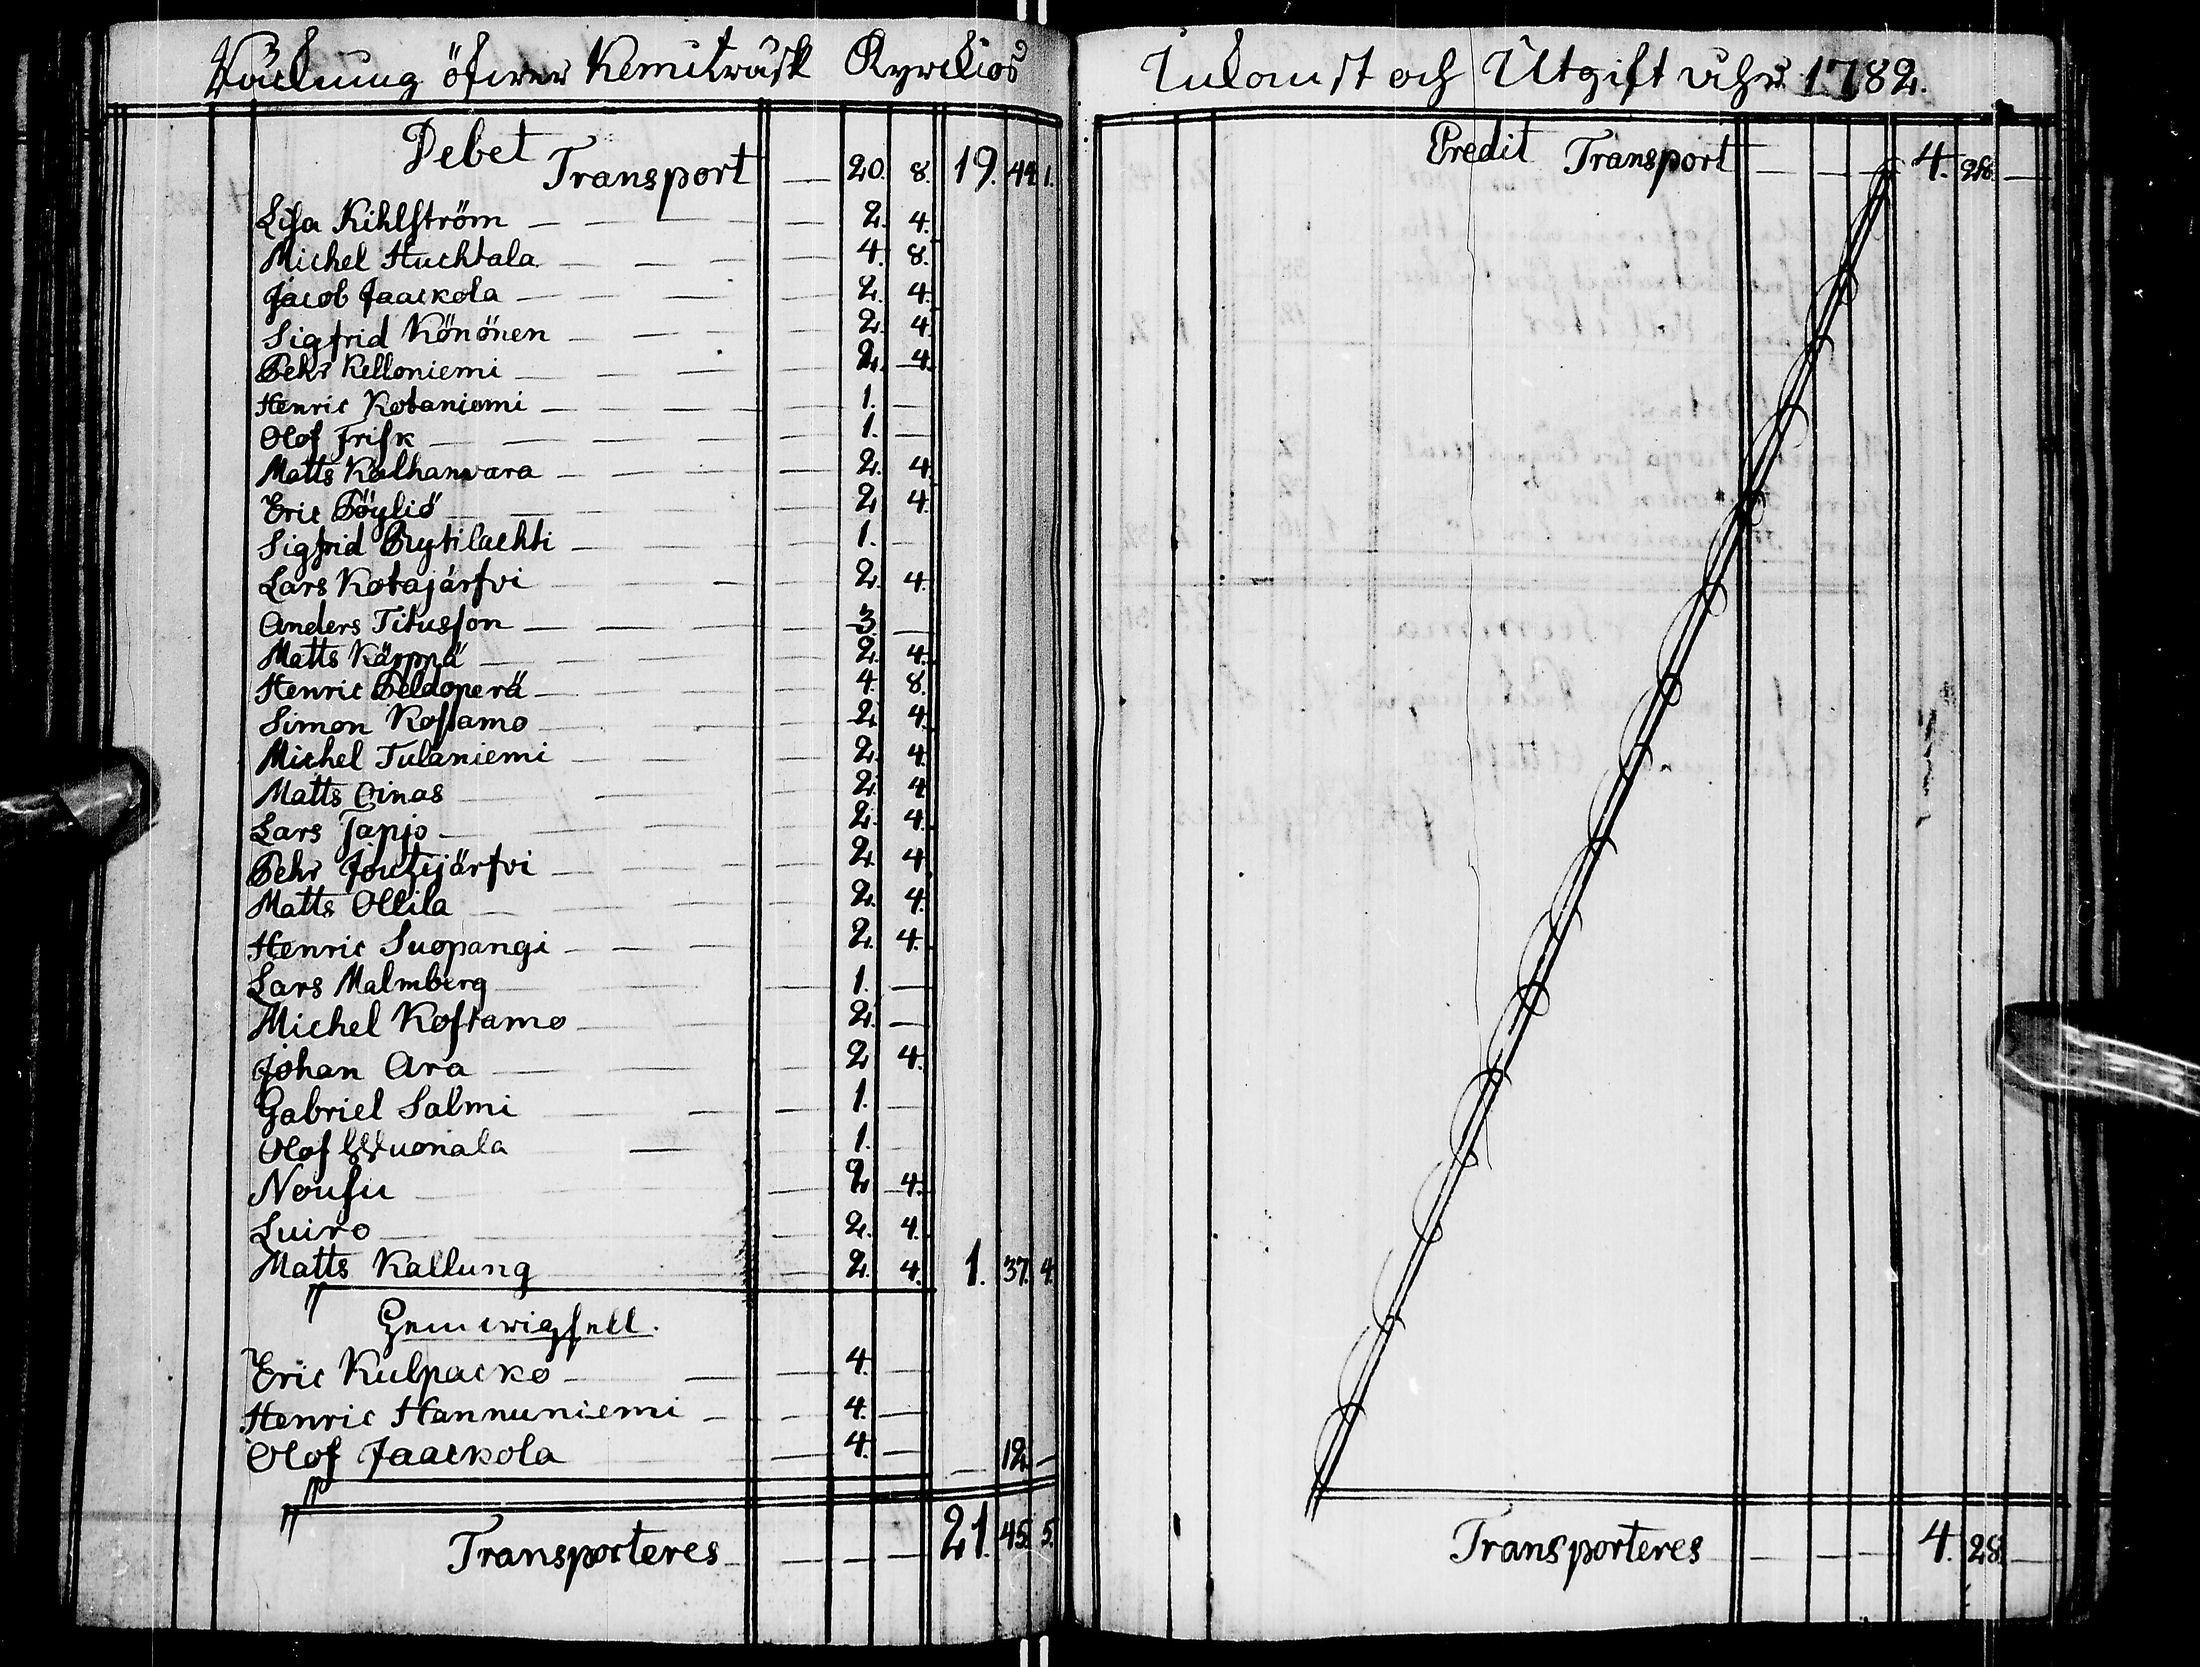 Räckning öfwer Kemiträsk Kyrckios
Debet
Transport — 20. 8. 19. 44. 1.
Lisa Kihlström — 2. 4.
Michel Huchtala — 4. 8.
Jacob Jaackola — 2. 4.
Sigfrid Könönen — 2. 4.
Pehr Kelloniemi — 2. 4.
Henric Kotaniemi — 1. —
Olof Frisk — 1. —
Matts Kalhanvara — 2. 4.
Eric Pöyliö — 2. 4.
Sigfrid Rytilachti — 1. —
Lars Kotajärfvi — 2. 4.
Anders Titusson — 3 —
Matts Käppä — 2. 4.
Henric Peldoperä — 4. 8.
Simon Kostamo — 2. 4.
Michel Tulaniemi — 2. 4.
Matts Oinas — 2. 4
Lars Tapio — 2. 4.
Pehr Joutzijärfvi — 2. 4.
Matts Ollila — 2. 4.
Henric Suopangi — 2. 4.
Lars Malmberg — 1. —
Michel Kostamo — 2. —
Johan Ara — 2. 4.
Gabriel Salmi — 1. —
Olof Wuonala — 1. —
Nousu — 2. 4.
Luiro — 2. 4.
Matts Kallung — 2. 4. 1. 37. 4.
Eric Kulpacko — 4. —
Henric Hannuniemi — 4. —
Olof Jaackola — 4. — — 12. —
Transporteres — 21. 45. 5.
Inkomst och Utgift åhr 1782.
Credit
Transport — 4. 28. —
Transporteres — 4. 28. —